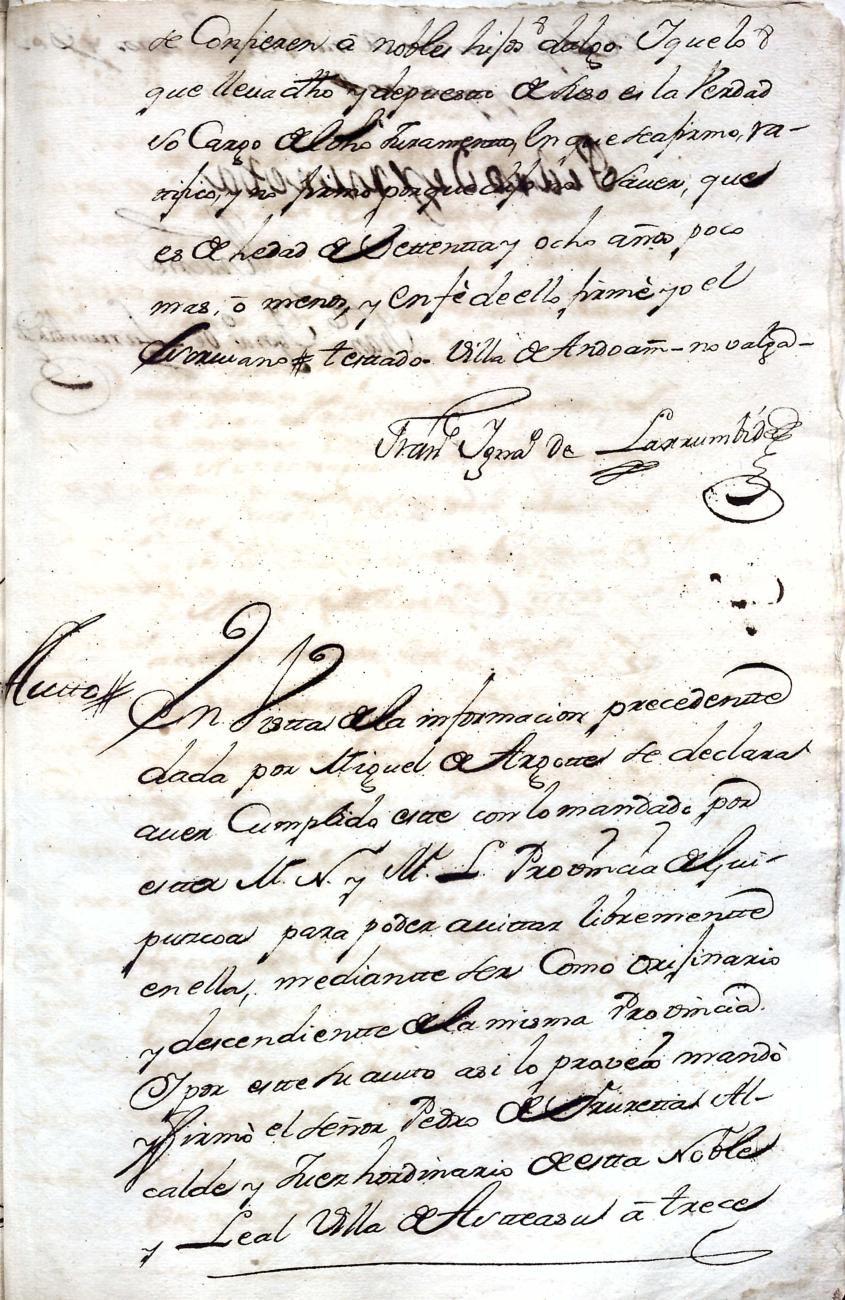 se Confieren â nobles hijos dalgo. Y que lo
que lleva dho y depuesto es la Verdad
so Cargo del dho Juramento, en que se afirmo, ra-
tifico, y no firmo porque dijo no Saver, que
es de hedad de Settentta y ocho años, poco
mas, ô menos, y en fè de ello firmè yo el
Escrivano # testado. Villa de Andoain - no valga -
Franco Ignao de Larrumbide
Autto #
En Vistta de la informacion precedentte
dada por Miguel de Argotte se declara
aver Cumplido este con lo mandado por
estta M. N. y M. L. Provincia de Gui-
puzcoa para poder avittar libremente
en ella, mediantte ser Como orijinario
y descendientte de la misma Provincia.
Y por estte su autto asi lo proveò mandò
y firmò el señor Pedro de Al-
calde y Juez hordinario de estta Noble
y Leal Villa de Asteasu â trece